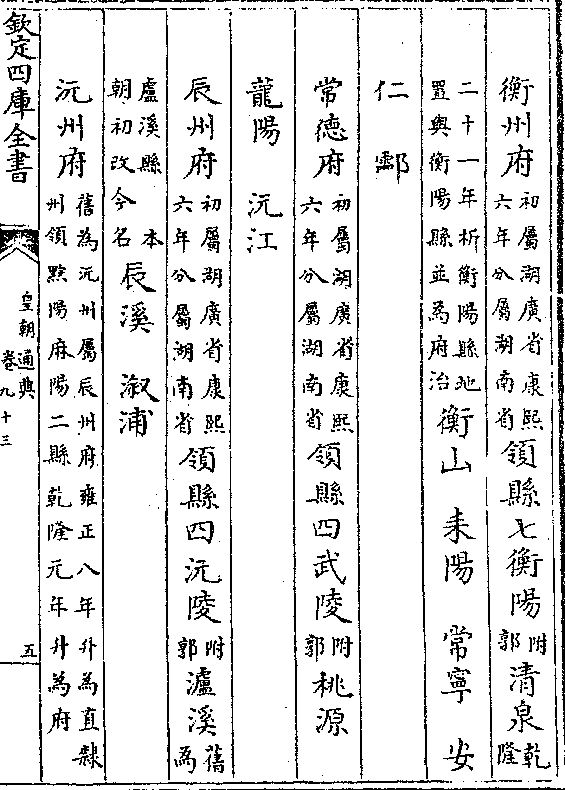 衡州府初屬湖廣省康熙六年分屬湖南省領縣七衡陽附郭清泉乾隆
二十一年析衡陽縣地置與衡陽縣並為府治衡山 耒陽 常寧 安
仁 酃
常德府初屬湖廣省康熙六年分屬湖南省領縣四武陵附郭桃源
龍陽 沅江
辰州府初屬湖廣省康熙六年分屬湖南省領縣四沅陵附郭瀘溪舊為
盧溪縣本朝初改今名辰溪 漵浦
沅州府舊為沅州屬辰州府雍正八年升為直隸州領黔陽麻陽二縣乾隆元年升為府
欽定四庫全書
皇朝通典
卷九十三
五